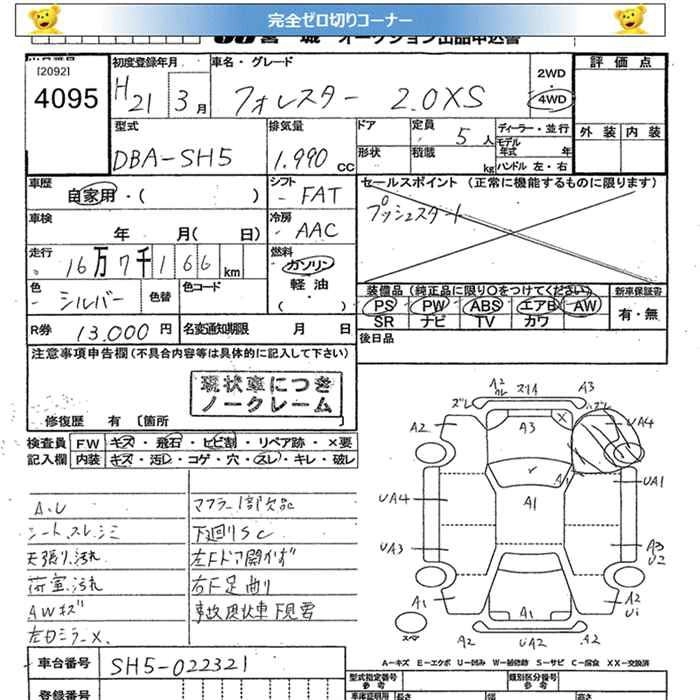 完全ゼロ切りコーナー
宮城 オークション出品申込書
[2092]
4095
初度登録年月
H21 3月
車名・グレード
フォレスター 2.0XS
2WD
・
4WD
評価点
外装 内装
型式
DBA-SH5
排気量
1,990 CC
ドア
形状
定員 5人
積載 kg
ディーラー・並行
モデル年式 年
ハンドル 左・右
車歴
自家用・( )
シフト
FAT
セールスポイント (正常に機能するものに限ります)
プッシュスタート
車検
年 月( 日)
冷房
AAC
走行
16万7千166km
燃料
ガソリン
軽油
・( )
色
シルバー
色替
色コード
装備品 (純正品に限り○をつけてください)
PS PW ABS エアB AW
SR ナビ TV カワ
新車保証書
有・無
R券 13,000円
名変通知期限 月 日
後日品
注意事項申告欄(不具合内容等は具体的に記入して下さい)
現状車につき
ノークレーム
修復歴 有 〔箇所 〕
検査員 FW キズ・飛石・ヒビ割・リペア跡・×要
記入欄 内装 キズ・汚レ・コゲ・穴・スレ・キレ・破レ
A.U
シートスレ、シミ
天張り汚れ
荷室汚れ
AWキズ
左ドミラーX
マフラー1部欠品
下廻りSC
左Fドア開かず
右F足曲り
事故現状車 下見要
A2
クレ
スリキ
A3
ズレ
ズレ
A2
A3
X
UA4
A1
UA1
UA4
A1
UA3
A3
U2
A1
A1
A2
Ui
スペア
A2
UA2
A2
A-キズ E-エクボ U-凹み W-補修跡 S-サビ C-腐食 XX-交換済
車台番号 SH5-022321
登録番号
型式指定番号
参考
類別区分番号
参考
車庫証明用 長さ 幅 高さ